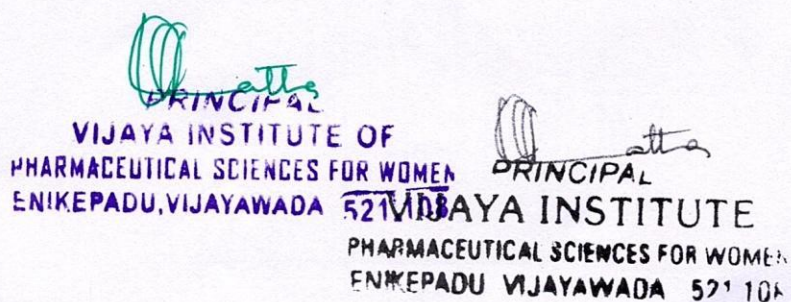 PRINCIPAL
VIJAYA INSTITUTE OF
PHARMACEUTICAL SCIENCES FOR WOMEN
ENIKEPADU, VIJAYAWADA 521 108
PRINCIPAL
VIJAYA INSTITUTE
PHARMACEUTICAL SCIENCES FOR WOMEN
ENIKEPADU VIJAYAWADA 521 108